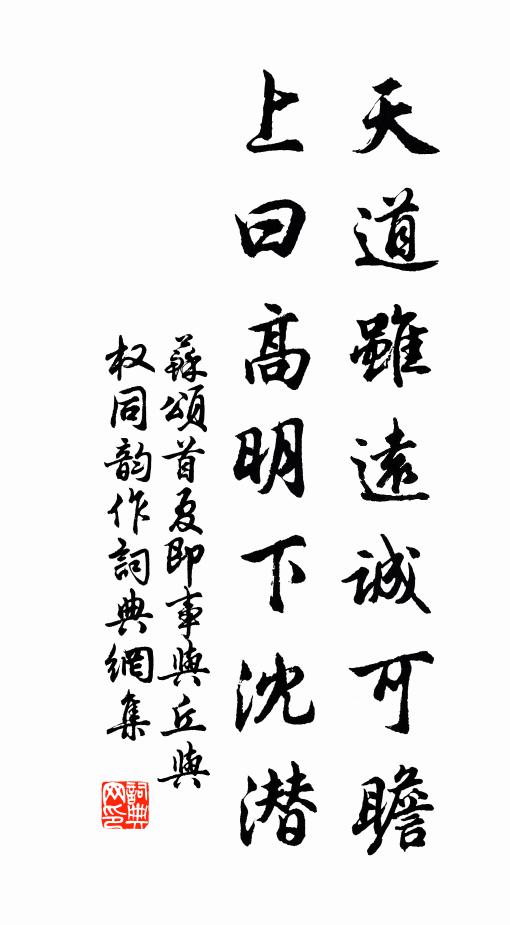 天道雖遠誠可瞻
上曰高明下沈潛
蘇頌首夏即事與丘與
权同韵作詞典網集
詞典网印